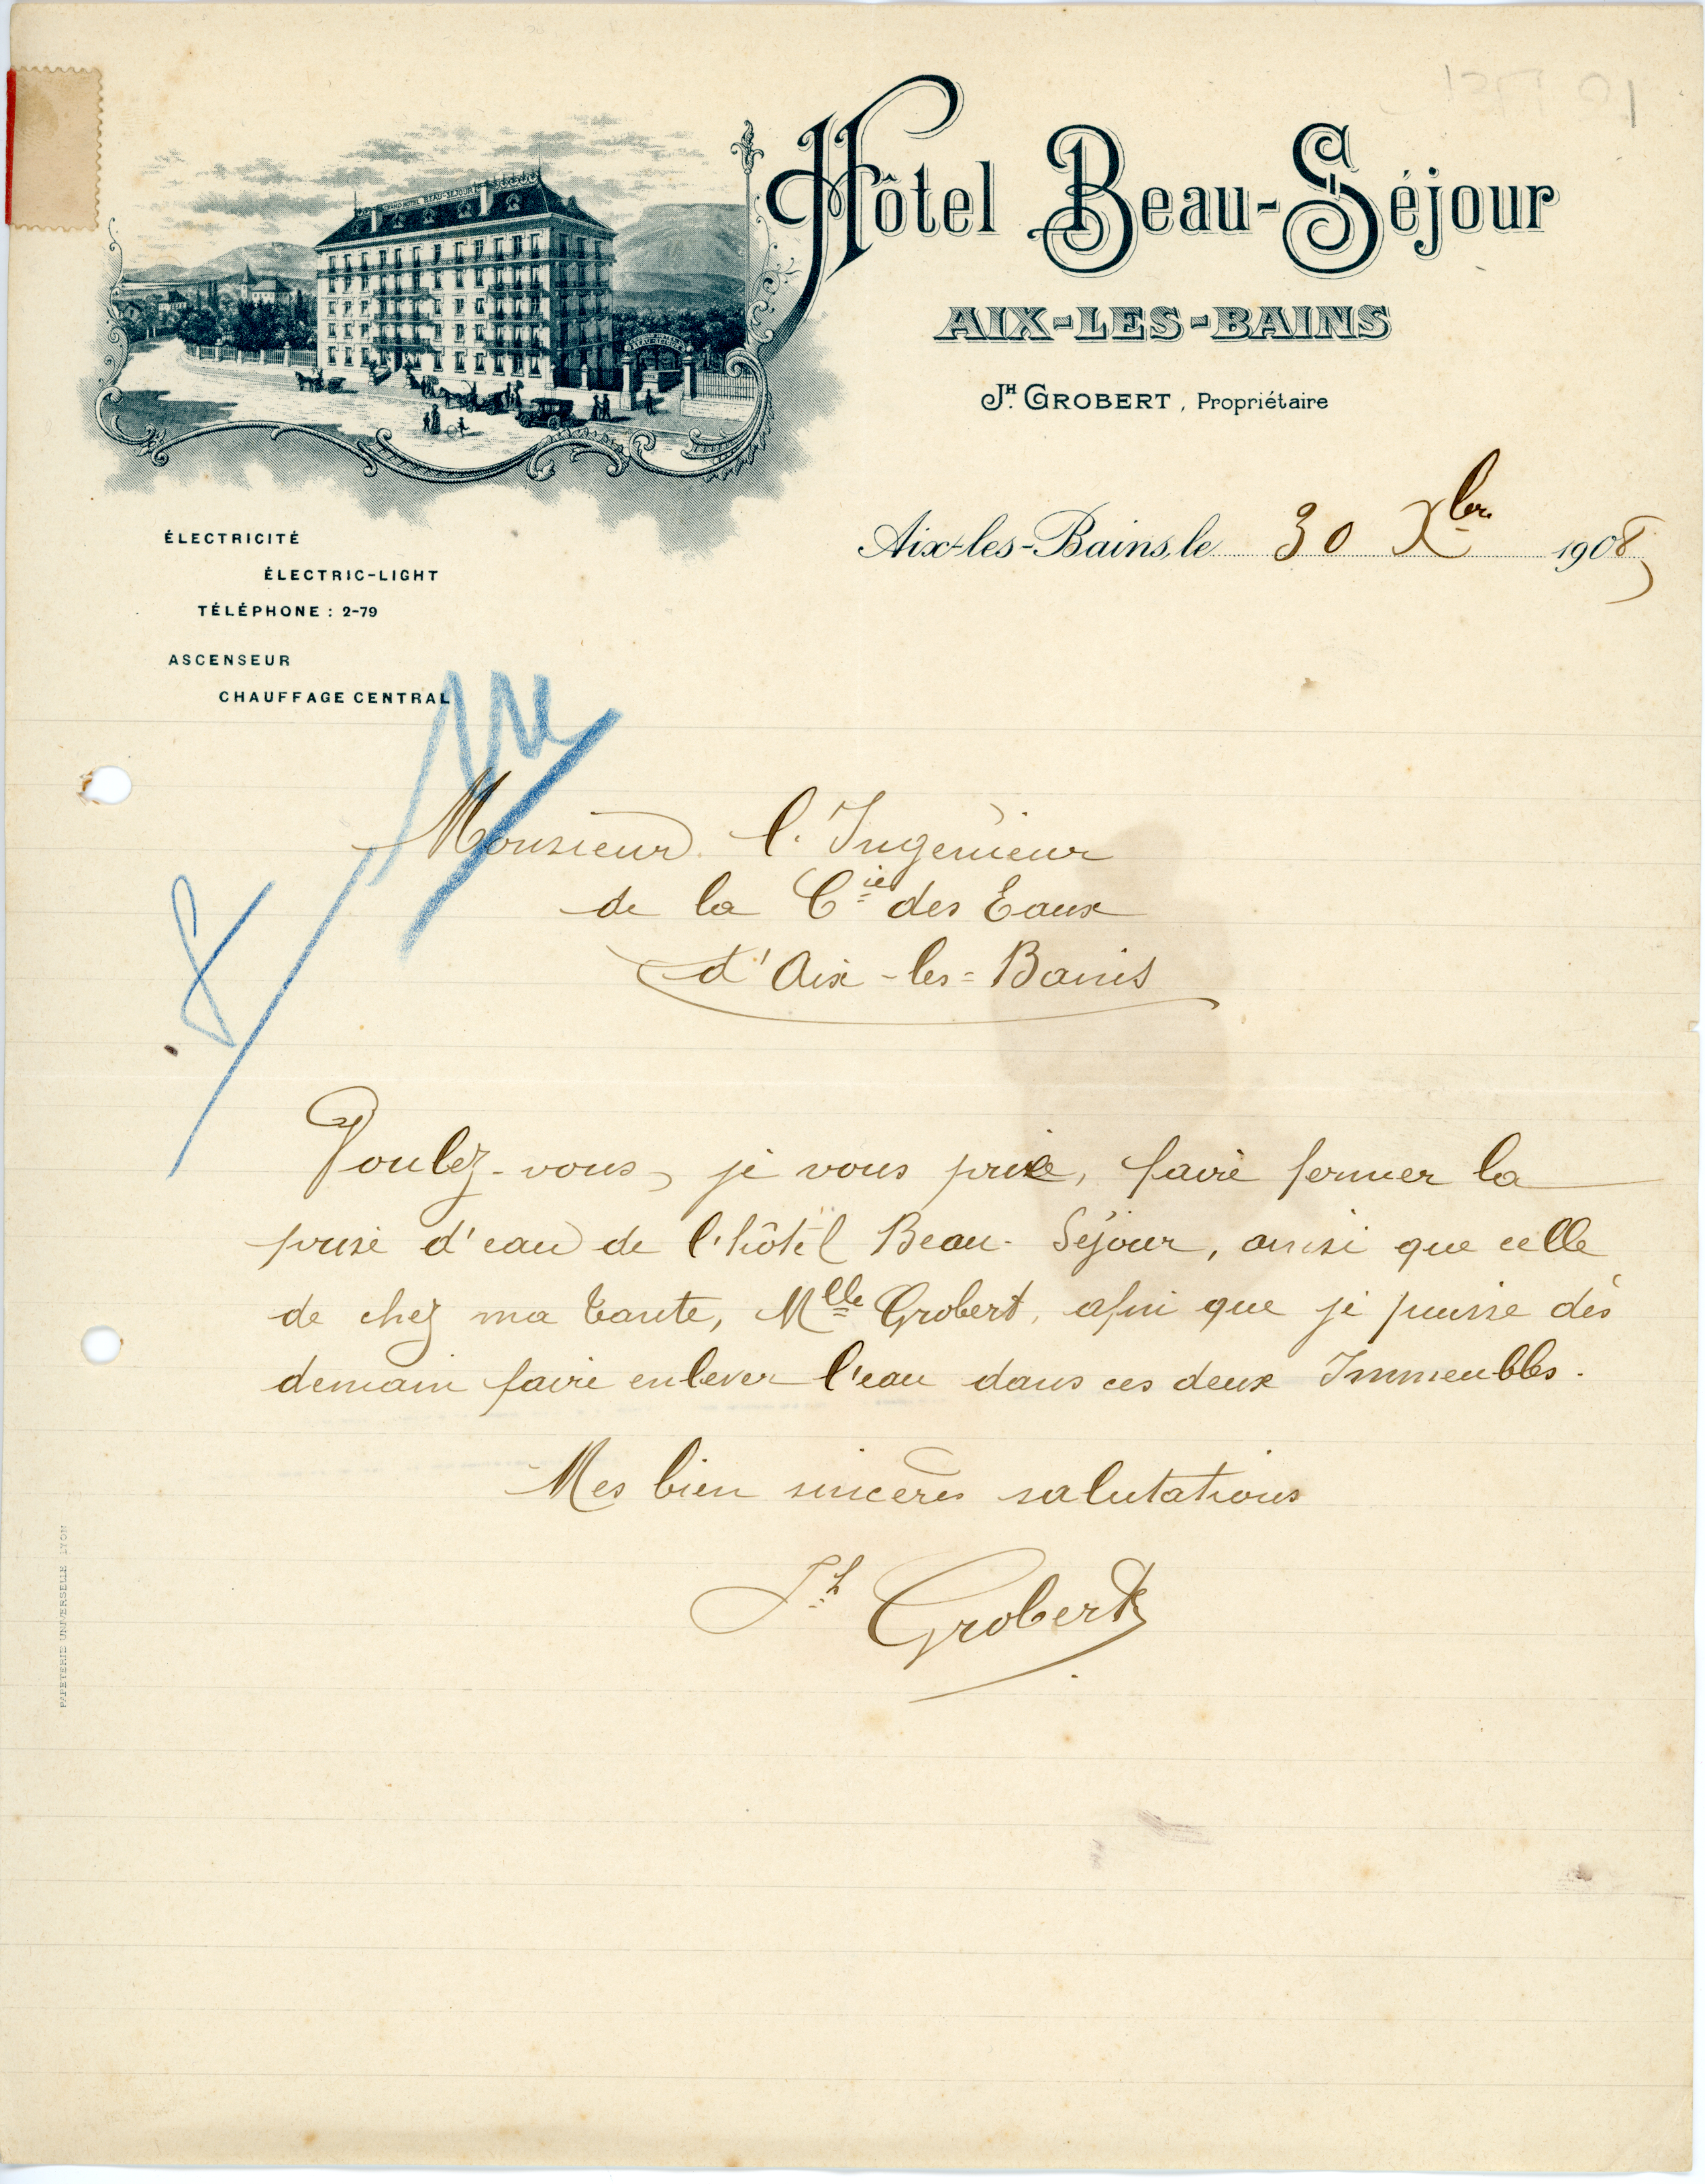 Hôtel Beau-Séjour
AIX-LES-BAINS
JH. GROBERT, Propriétaire
GRAND HOTEL BEAU-SEJOUR
Aix-les-Bains, le 30 Xbre 1908
ÉLECTRICITÉ
ÉLECTRIC-LIGHT
TÉLÉPHONE : 2-79
ASCENSEUR
CHAUFFAGE CENTRAL
Monsieur l'Ingénieur
de la Cie des Eaux
d'Aix-les-Bains
Voulez-vous, je vous prie, faire fermer la
prise d'eau de l'hôtel Beau-Séjour, ainsi que celle
de chez ma tante, Mlle Grobert, afin que je puisse dès
demain faire enlever l'eau dans ces deux Immeubles.
Mes bien sincères salutations
Jh Grobert
PAPETERIE UNIVERSELLE LYON